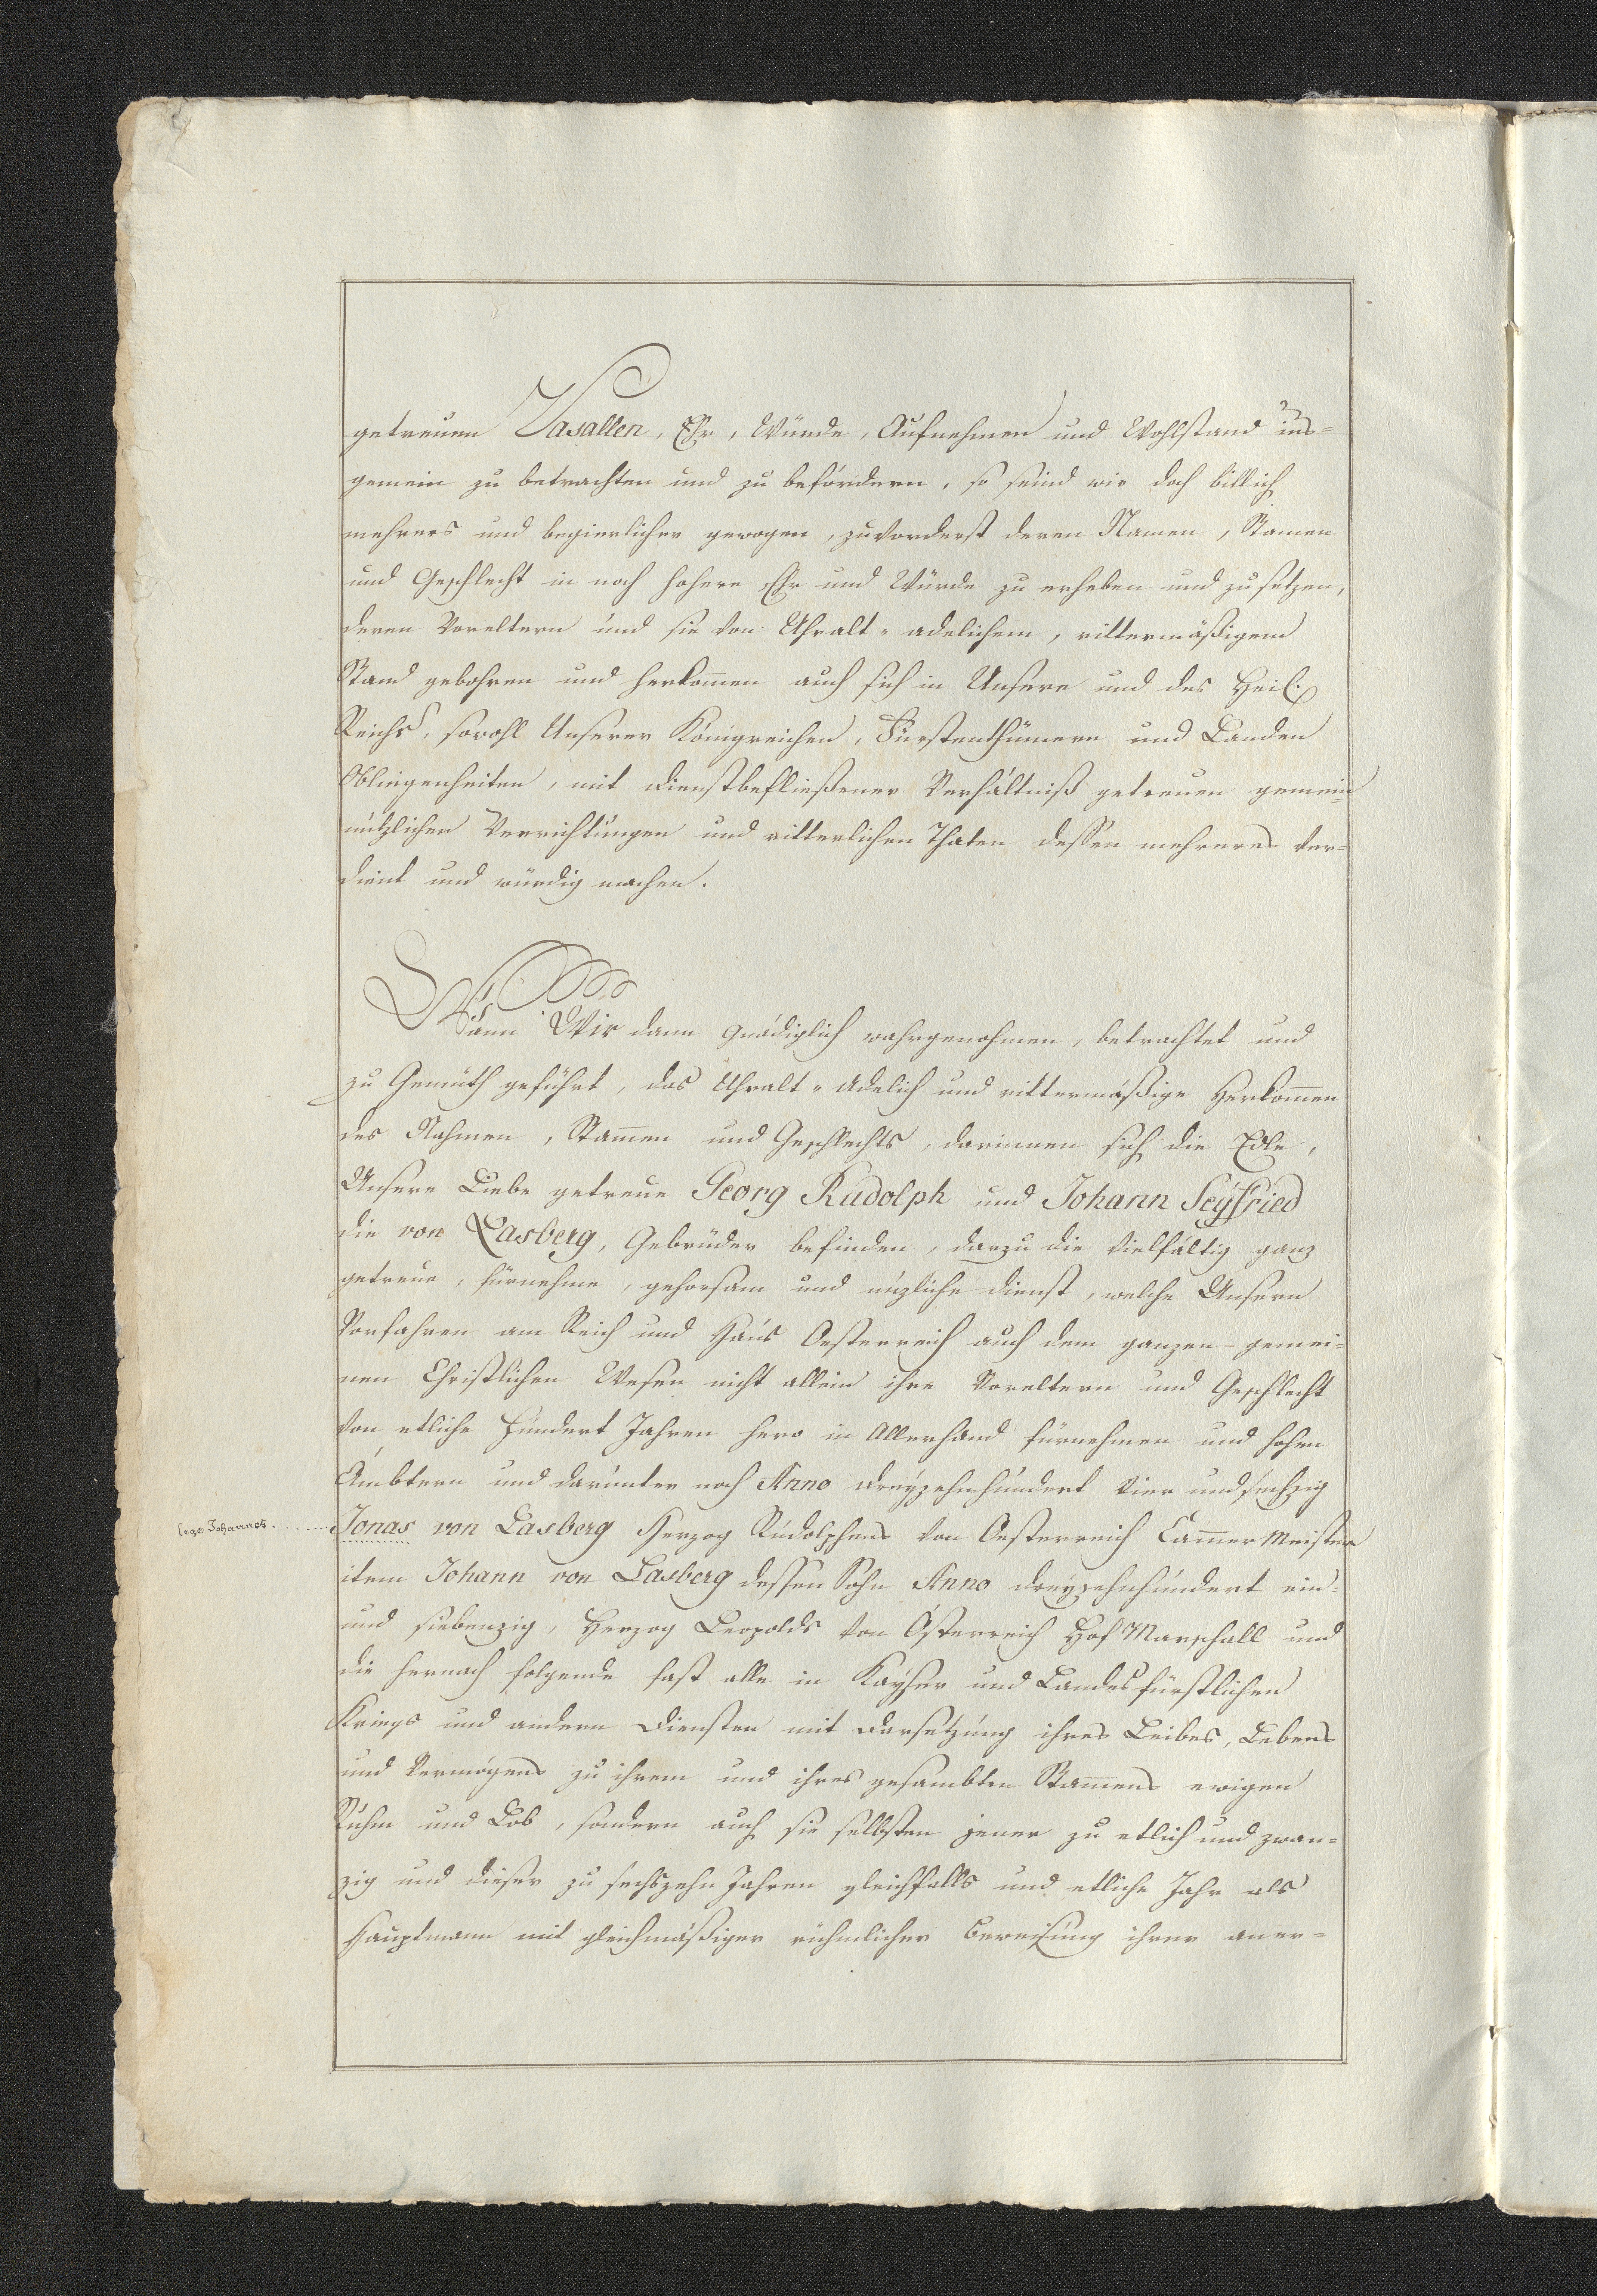 getreuen Vasallen, Ehr, Würde, Aufnehmen und Wohlstand ins=
gemein zu betrachten und zu befördern, so seind wir doch billich
mehrers und begierlicher gewogen, zuvorderst deren Namen, Stamen
und Geschlecht in noch höhere Ehr und Würde zu erheben und zu setzen,
deren Voreltern und sie von Uhralt-adelichem, rittermäßigem
Stand gebohren und herkom̄en auch sich in Unsere und des Heil.
Reichs, sowohl Unserer Königreichen, Fürstenthümern und Landen
Obliegenheiten, mit dienstbefließener Verhältniß getreuen gemein
nützlichen Verrichtungen und ritterlichen Thaten dessen mehreres ver=
dient und würdig machen.
Wann Wir dann gnädiglich wahrgenohmen, betrachtet und
zu Gemüth geführt, das Uhralt-Adelich und rittermäßige Herkom̄en
des Nahmen, Stam̄en und Geschlechts, darinnen sich die Edle,
Unsere Liebe getreue Georg Rudolph und Johann Seyfried
die von Lasberg, Gebrüder befinden, darzu die vielfältig ganz
getreue, fürnehme, gehorsam und nüzliche dienst, welche Unsern
Vorfahren am Reich und Haus Oesterreich auch dem ganzen gemei=
nen Christlichen Wesen nicht allein ihre Voreltern und Geschlecht
von etliche hundert Jahren hero in Allerhand fürnehmen und hohen
Ämbtern und darunter noch Anno dreyzehnhundert vier und sechzig
lege Johannes. . . . . . .
Jonas von Lasberg Herzog Rudolphens von Oesterreich Cam̄er Meister
item Johann von Lasberg dessen Sohn Anno dreyzehnhundert ein=
und siebenzig, Herzog Leopolds von Österreich Hof Marschall und
die hernach folgende fast alle in Kayser und Landesfürstlichen
Kriegs und andern Diensten mit Darsetzung ihres Leibes, Lebens
und Vermögens zu ihrem und ihres gesambten Stam̄ens ewigen
Ruhm und Lob, sondern auch sie selbsten jener zu etlich und zwan=
zig und dieser zu sechszehn Jahren gleichfalls und etliche Jahr als
Hauptmann mit gleichmäßiger rühmlicher Beweisung ihrer aner=